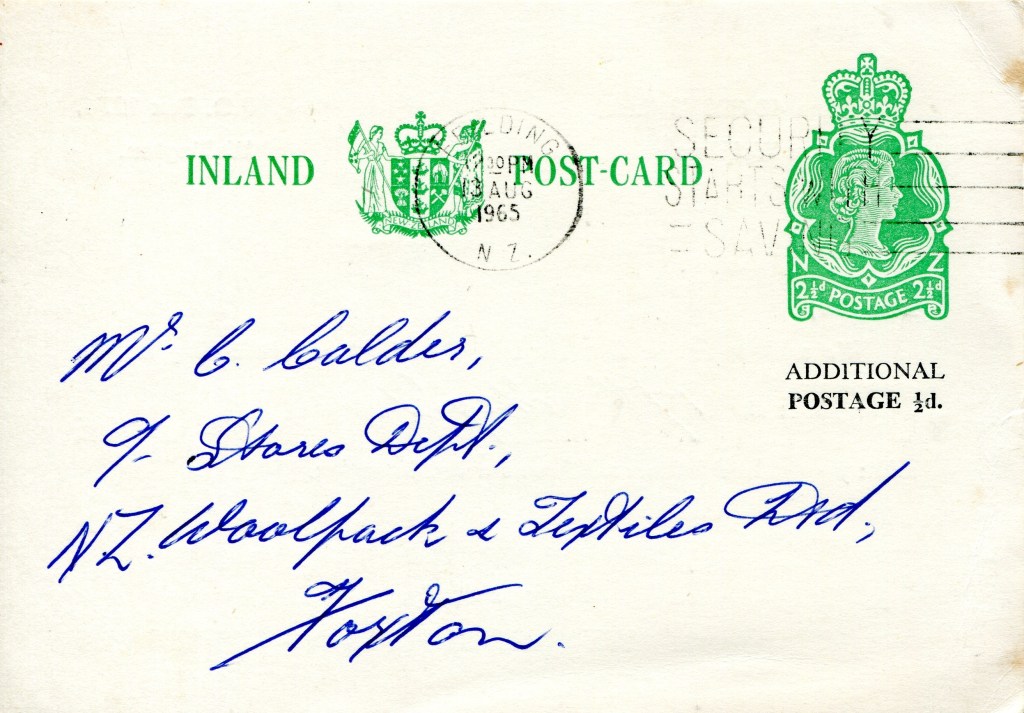 INLAND POST-CARD
NEW ZEALAND
FEILDING
30 PM
13 AUG
1965
N Z.
SECURITY
STARTS WITH
= SAVING
N Z
2½d POSTAGE 2½d
ADDITIONAL
POSTAGE ½d.
Mr. C. Calder,
C/- Stores Dept.,
N.Z. Woolpack & Textiles Ltd,
Foxton.